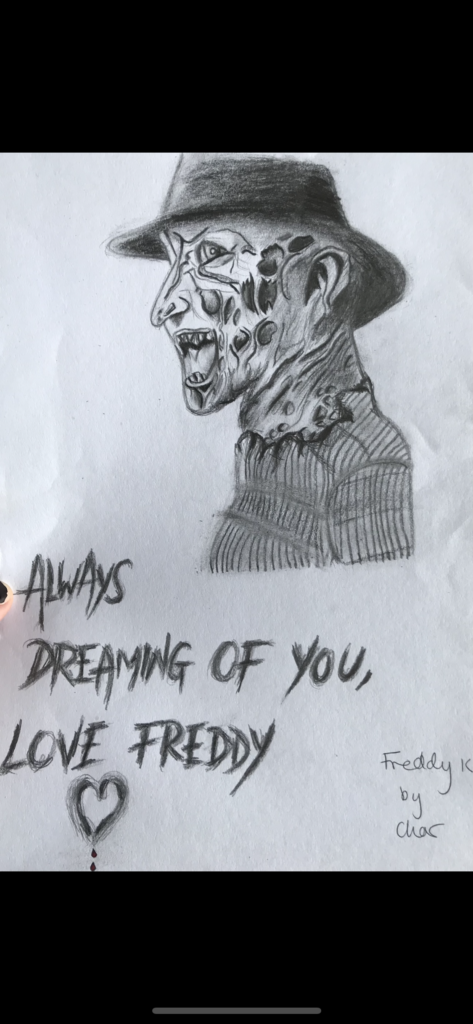 ALWAYS
DREAMING OF YOU,
LOVE FREDDY
Freddy K
by
Char